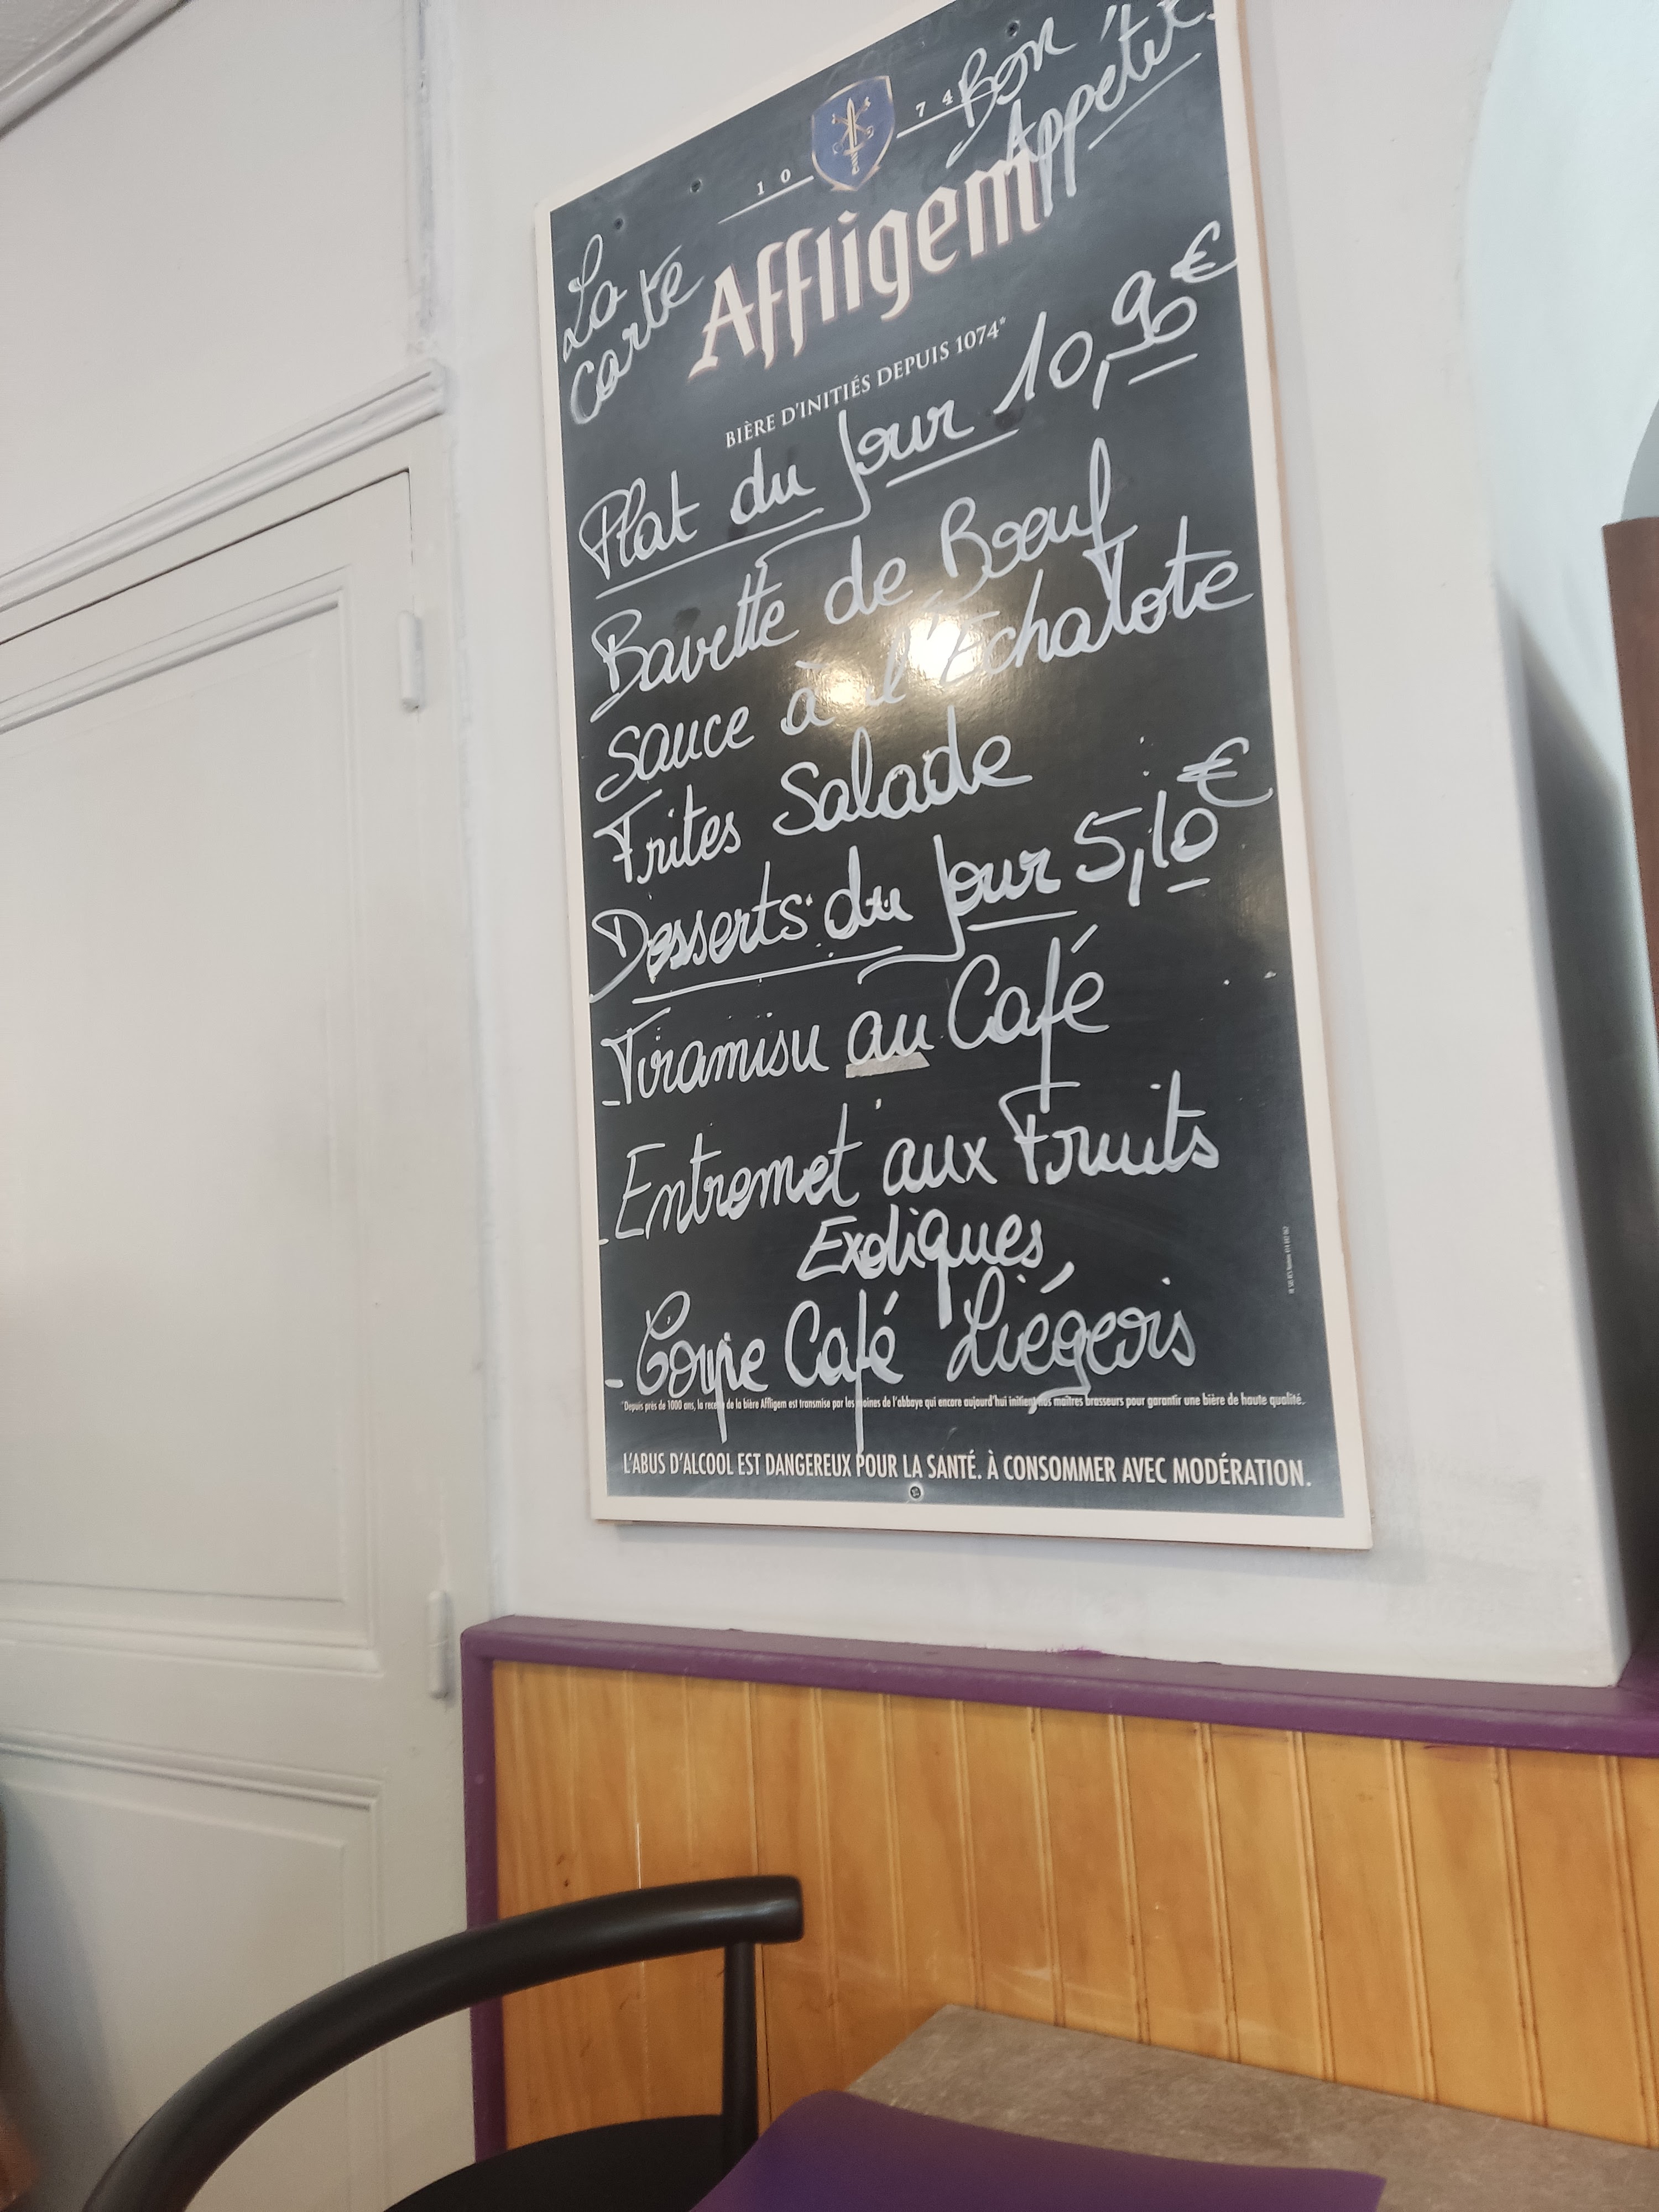 Bon
Appétit
10 74
La
carte
Affligem
BIÈRE D'INITIÉS DEPUIS 1074*
Plat du Jour 10,90€
Bavette de Bœuf
Sauce à l'Echalote
Frites Salade
Desserts du Jour 5,10€
-Tiramisu au Café
-Entremet aux Fruits
Exotiques
-Coupe Café Liégeois
*Depuis près de 1000 ans, la recette de la bière Affligem est transmise par les moines de l'abbaye qui encore aujourd'hui initient nos maîtres brasseurs pour garantir une bière de haute qualité.
L'ABUS D'ALCOOL EST DANGEREUX POUR LA SANTÉ. À CONSOMMER AVEC MODÉRATION.